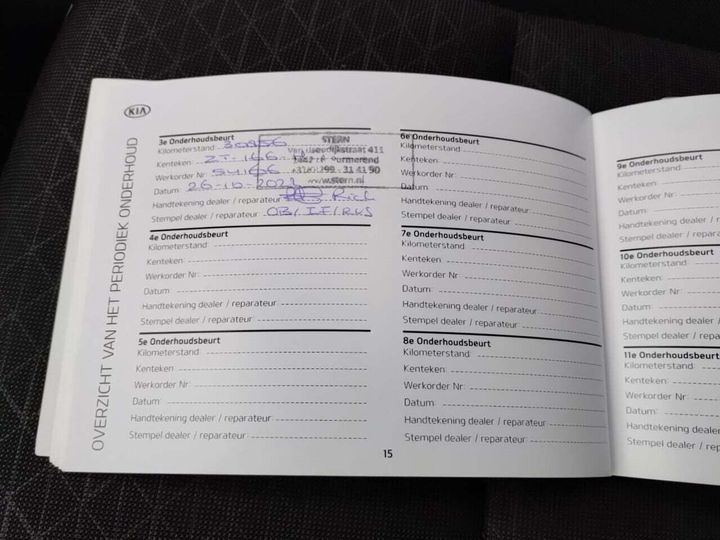 KIA
OVERZICHT VAN HET PERIODIEK ONDERHOUD
3e Onderhoudsbeurt
Kilometerstand 30856
Kenteken: ZT-166-
Werkorder Nr: 54166
Datum: 26-10-202
Handtekening dealer / reparateur: Rich
Stempel dealer / reparateur: OB/IF/RVS
STERN
411
Purmerend
299 - 31 41 90
www.stern.nl
4e Onderhoudsbeurt
Kilometerstand
Kenteken:
Werkorder Nr:
Datum
Handtekening dealer / reparateur
Stempel dealer / reparateur:
5e Onderhoudsbeurt
Kilometerstand:
Kenteken:
Werkorder Nr:
Datum:
Handtekening dealer / reparateur
Stempel dealer / reparateur:
6e Onderhoudsbeurt
Kilometerstand
Kenteken:
Werkorder Nr:
Datum:
Handtekening dealer / reparateur
Stempel dealer / reparateur:
7e Onderhoudsbeurt
Kilometerstand:
Kenteken:
Werkorder Nr
Datum:
Handtekening dealer / reparateur
Stempel dealer / reparateur
8e Onderhoudsbeurt
Kilometerstand:
Kenteken:
Werkorder Nr:
Datum:
Handtekening dealer / reparateur:
Stempel dealer / reparateur:
15
9e Onderhoudsbeurt
Kilometerstand
Kenteken:
Werkorder Nr:
Datum:
Handtekening dealer /
Stempel dealer / reparate
10e Onderhoudsbeurt
Kilometerstand:
Kenteken:
Werkorder Nr:
Datum:
Handtekening dealer /
Stempel dealer / reparate
11e Onderhoudsbeurt
Kilometerstand:
Kenteken:
Werkorder Nr:
Datum:
Handtekening dealer /
Stempel dealer / repara